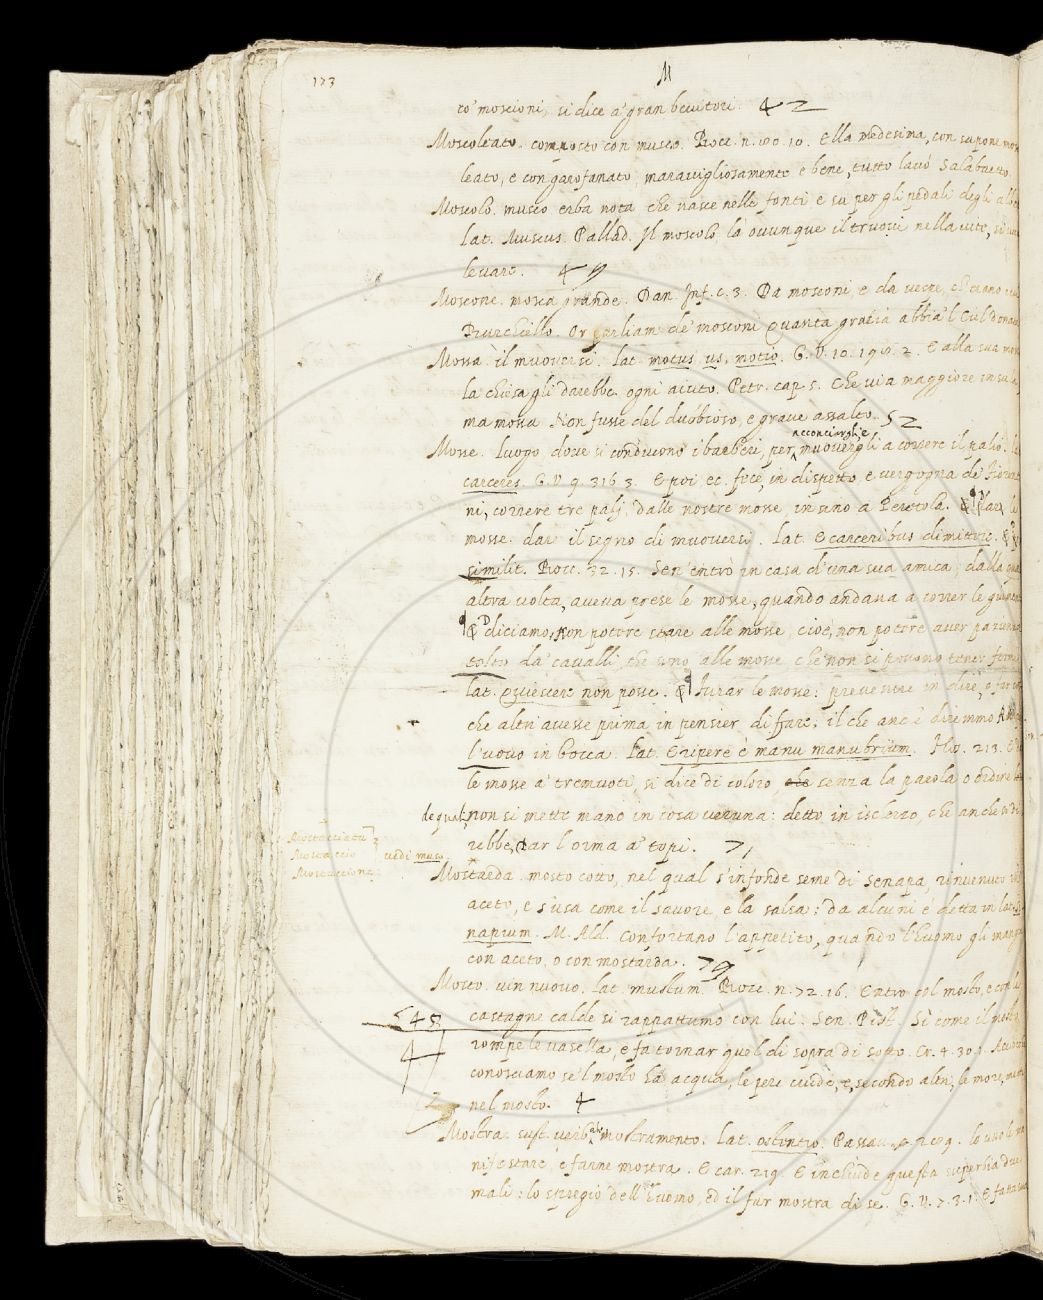 173
M
to' moscioni, si dice a' gran bevitori. 42
Moscoleato. composto con musco. Bocc. n. 80. 10. Ella medesima, con sapone mos
leato, e con garofanato, maravigliosamente e bene, tutto lavò Salabaetto.
Moscolo. musco erba nota che nasce nelle fonti e su per gli pedali degli albe
Lat. Muscus. Pallad. Il moscolo là ovunque il truovi nella vite, si
levare. 49
Moscone. mosca grande. Dan. Inf. c. 3. Da mosconi e da vespe, ch'erano ivi
Burchiello. Or parliam de' mosconi Quanta grazia abbia 'l Ciel donata
Mossa. il muoversi. Lat. motus us, motio. G. V. 10. 2. E alla sua mossa
la chiesa gli darebbe ogni aiuto. Petr. cap. 5. Che via maggiore in su la
ma mossa Non fusse del dubbioso, e grave assalto. 52
acconciargli e
Mosse. Luogo dove si conducono i barberi, per muovergli a correre il palio. la
carceres. G. V. 9. 316. 3. E poi ec. fece, in dispetto, e vergogna de' Fioren
ni, correre tre palj dalle nostre mosse in sino a Peretola. Dar le
mosse. dar il segno di muoversi. Lat. E carceribus dimittere.
similit. Bocc. 32. 15. Sen' entrò in casa d'una sua amica, dalla qua
altra volta, aveva prese le mosse, quando andava a correr le giumente
diciamo, Non potere stare alle mosse, cioè, non potere aver pazienza
tolto da' cavalli, che sono alle mosse, che non si possono tener fermi
lat. Quiescere non posse. Furar le mosse: prevenire in dire, o far cosa
che altri avesse prima in pensier di fare; il che anc' è diremmo
l'uovo in bocca. Lat. Eripere è manu manubrium.
le mosse a' tremuoti, si dice di coloro, che senza la parola o ordine
de' quali non si mette mano in cosa veruna: detto in ischerzo, che anche si di
rebbe, Dar l'orma a' topi. 71
Mostacciata
Mostaccio vedi muso
Mostaccione
Mostarda. mosto cotto, nel qual s'infonde seme di senapa, rinvenuto in
aceto, e s'usa come il savore, e la salsa: da alcuni è detta in lat. Si
napium. M. Ald. Confortano l'appetito, quando l'huomo gli mangia
con aceto, o con mostarda. 79
Mosto. vin nuovo. Lat. mustum. Bocc. n. 72. 16. Entro col mosto, e con le
castagne calde si rappattumò con lui. Sen. Pist. Sì come il mosto
rompe le vasella, e fa tornar quel di sopra di sotto. Cr. 4. 30. 1.
conosciamo se 'l mosto ha acqua, le pere crude, e, secondo altri, le more,
nel mosto. 4
Mostra. sust. verbale mostramento. Lat. ostentio. Passav.
nifestare, e farne mostra. E car. 219. E inchiude questa superbia due
mali: lo spregio dell'huomo, ed il far mostra di se. G. V. 7. 3. 1. E fatta